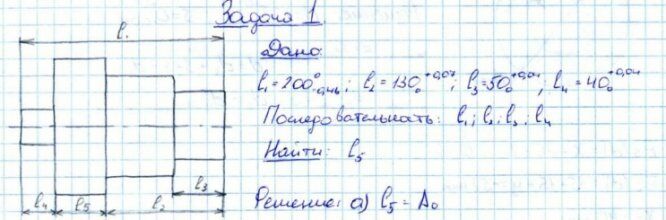 Задача 1
l₁
Дано:
l₁=200⁰₋₀,₄₆; l₂=130₀⁺⁰,⁰⁴; l₃=50₀⁺⁰,⁰⁴; l₄=40₀⁺⁰,⁰⁴
Последовательнать: l₁; l₂; l₃; l₄
Найти: l₅
l₃
l₄ l₅ l₂
Решение: а) l₅ = A₀